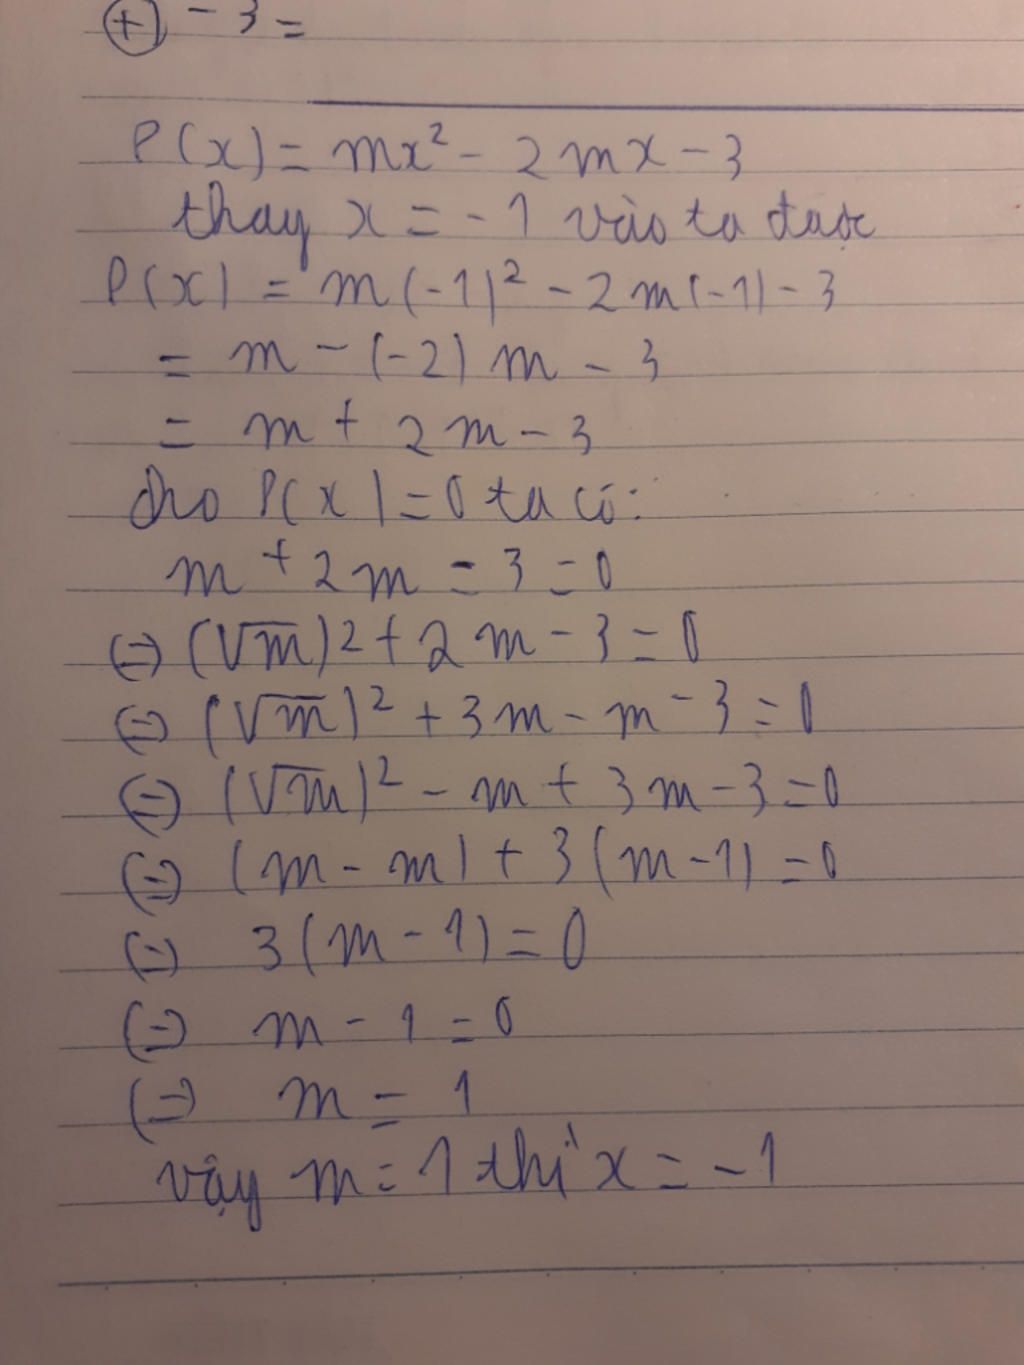 (+) - 3 =
P(x) = mx² - 2mx - 3
thay x = -1 vào ta được
P(x) = m(-1)² - 2m(-1) - 3
= m - (-2)m - 3
= m + 2m - 3
cho P(x) = 0 ta có:
m + 2m = 3 = 0
(=) (√m)² + 2m - 3 = 0
(=) (√m)² + 3m - m - 3 = 0
(=) (√m)² - m + 3m - 3 = 0
(=) (m - m) + 3(m - 1) = 0
(=) 3(m - 1) = 0
(=) m - 1 = 0
(=) m = 1
vậy m = 1 thì x = -1